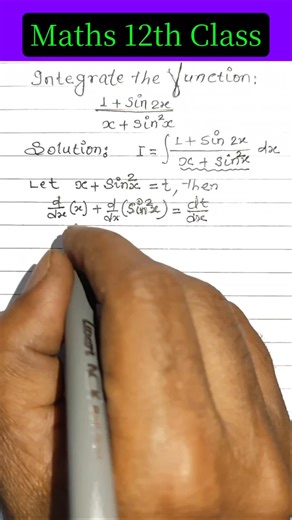 Maths 12th Class
Integrate the Function:
1 + Sin 2x / x + Sin²x
Solution: I = ∫ 1 + Sin 2x / x + Sin²x dx
Let x + Sin²x = t, then
d/dx (x) + d/dx (Sin²x) = dt/dx